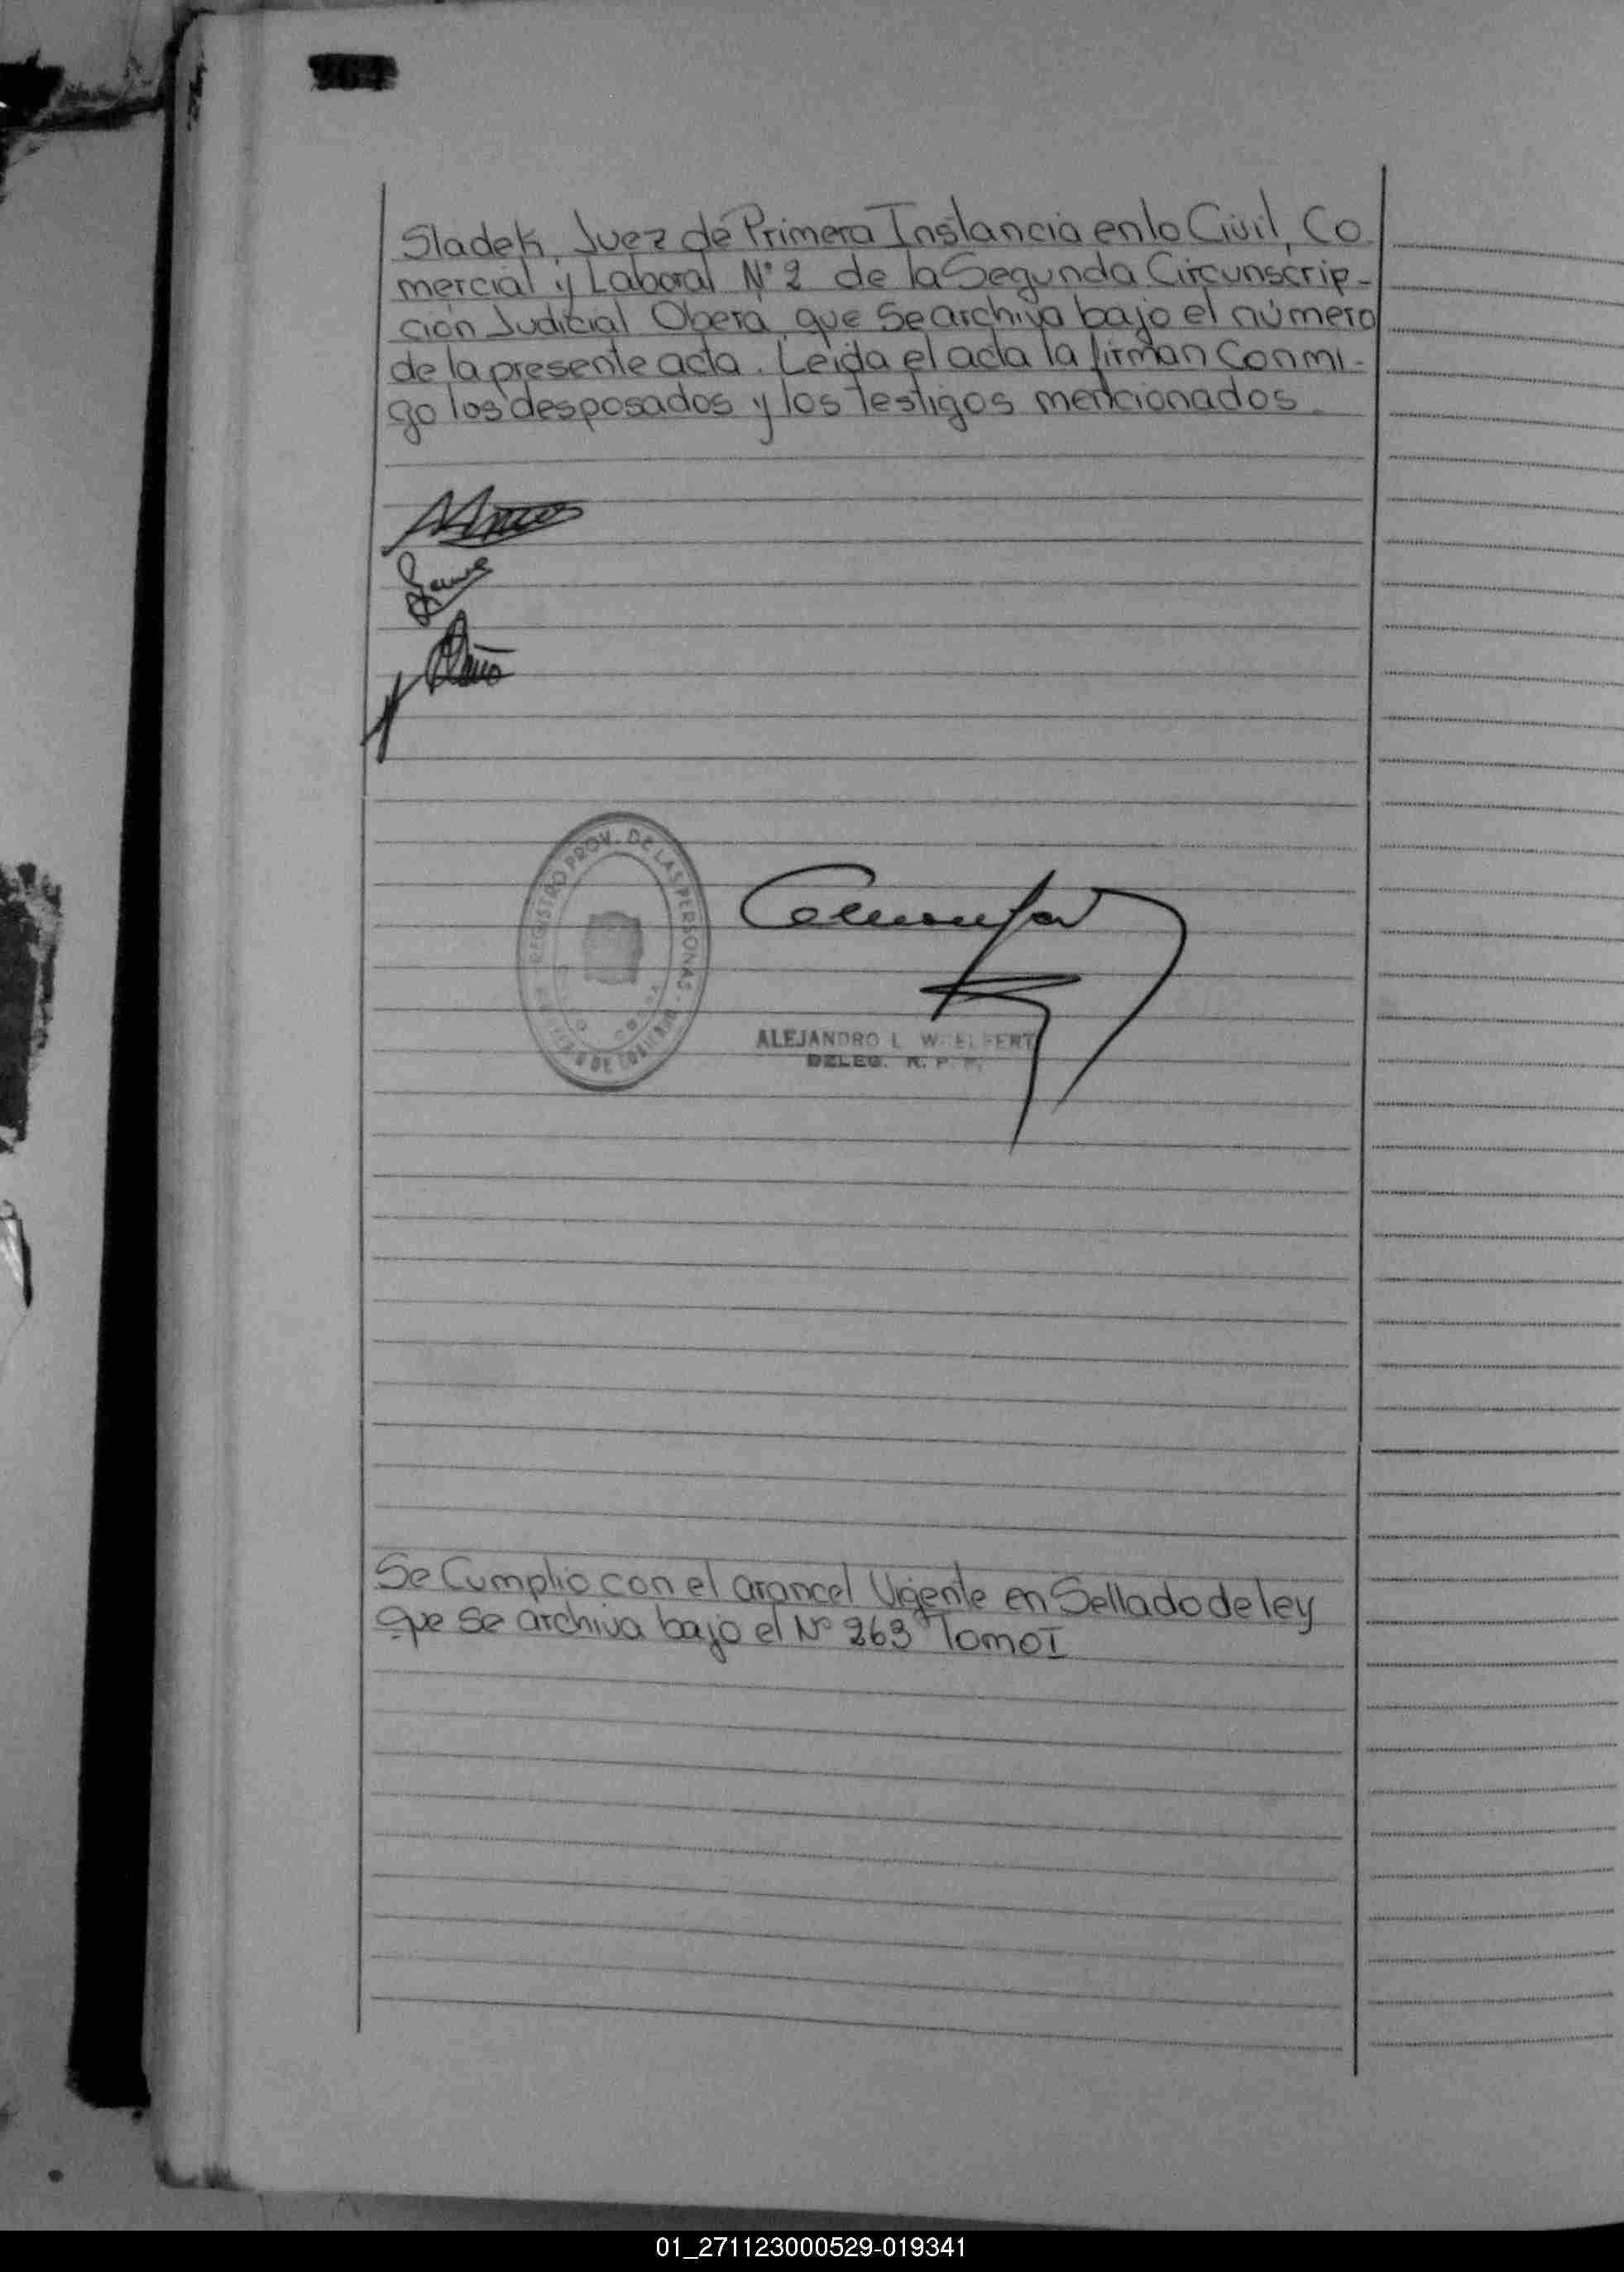 Sladek, Juez de Primera Instancia en lo Civil, Co
mercial y Laboral N° 2 de la Segunda Circunscrip-
ción Judicial Oberá, que se archiva bajo el número
de la presente acta. Leida el acta la firman Conmi-
go los desposados y los Testigos mencionados.
REGISTRO PROV. DE LAS PERSONAS
ALEJANDRO L. W. ELFERT
DELEG. R. P. P.
Se Cumplio con el arancel Vigente en Sellado de ley
que se archiva bajo el N° 263 Tomo I
01_271123000529-019341